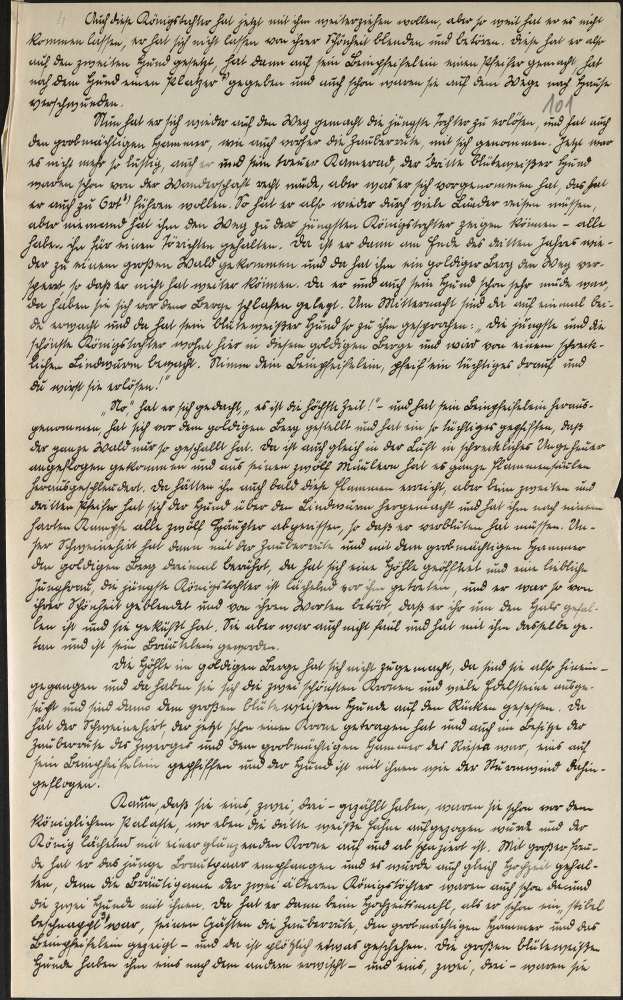 4
Auch diese Königstochter hat jetzt mit ihm weiterziehen wollen, aber so weit hat er es nicht
kommen lassen, er hat sich nicht lassen von ihrer Schönheit blenden und betören. Diese hat er also
auf den zweiten Hund gesetzt, hat dann auf sein Beinpfeifelein einen Pfeifer gemacht, hat
noch dem Hund einen "Platzer" gegeben und auch schon waren sie auf dem Wege nach Hause
verschwunden.
101
Nun hat er sich wieder auf den Weg gemacht die jüngste Tochter zu erlösen, und hat auch
den großmächtigen Hammer, wie auch vorher die Zauberrute, mit sich genommen. Jetzt war
es nicht mehr so lustig, auch er und sein treuer Kamerad, der dritte blütenweißer Hund
waren schon von der Wanderschaft recht müde, aber was er sich vorgenommen hat, das hat
er auch zu Ort führen wollen. So hat er also wieder durch viele Länder reisen müssen,
aber niemand hat ihm den Weg zu der jüngsten Königstochter zeigen können - alle
haben ihn für einen Törichten gehalten. Da ist er dann am Ende des dritten Jahres wie-
der zu einem großen Wald gekommen und da hat ihm ein goldiger Berg den Weg ver-
sperrt so daß er nicht hat weiter können. Da er und auch sein Hund schon sehr müde war,
da haben sie sich vor dem Berge schlafen gelegt. Um Mitternacht sind da auf einmal bei-
de erwacht und da hat sein blütenweißer Hund so zu ihm gesprochen: „Die jüngste und die
schönste Königstochter wohnt hier in diesem goldigen Berge und wird von einem schreck-
lichen Lindwurm bewacht. Nimm dein Beinpfeifelein, pfeif' ein tüchtiges drauf und
du wirst sie erlösen!"
„No", hat er sich gedacht, „es ist die höchste Zeit!" - und hat sein Beinpfeifelein heraus-
genommen, hat sich vor dem goldigen Berg gestellt und hat ein so tüchtiges gepfiffen, daß
der ganze Wald nur so geschallt hat. Da ist auch gleich in der Luft ein schreckliches Ungeheuer
angeflogen gekommen und aus seinen zwölf Mäulern hat es ganze Flammensäulen
herausgeschleudert. Da hätten ihn auch bald diese Flammen erreicht, aber beim zweiten und
dritten Pfeifer hat sich der Hund über den Lindwurm hergemacht und hat ihm nach einem
harten Kampfe alle zwölf Häupter abgerissen, so daß er verbluten hat müssen. Un-
ser Schweinehirt hat dann mit der Zauberrute und mit dem großmächtigen Hammer
den goldigen Berg dreimal berührt, da hat sich eine Höhle geöffnet und eine liebliche
Jungfrau, die jüngste Königstochter ist lächelnd vor ihn getreten, und er war so von
ihrer Schönheit geblendet und von ihren Worten betört, daß er ihr um den Hals gefal-
len ist und sie geküßt hat. Sie aber war auch nicht faul und hat mit ihm dasselbe ge-
tan und ist sein Bräutelein geworden.
Die Höhle im goldigen Berge hat sich nicht zugemacht, da sind sie also hinein-
gegangen und da haben sie sich die zwei schönsten Kronen und viele Edelsteine ausge-
sucht und sind dann dem großen blütenweißen Hunde auf den Rücken gesessen. Da
hat der Schweinehirt, der jetzt schon eine Krone getragen hat und auch im Besitze der
Zauberrute des Zwerges und dem großmächtigen Hammer des Riesen war, eins auf
sein Beinpfeifelein gepfiffen und der Hund ist mit ihnen wie der Sturmwind dahin-
geflogen.
Kaum, daß sie eins, zwei, drei - gezählt haben, waren sie schon vor dem
königlichen Palaste, wo eben die dritte weiße Fahne aufgezogen wurde und der
König lächelnd mit einer glänzenden Krone auf und ab spaziert ist. Mit großer Freu-
de hat er das junge Brautpaar empfangen und es wurde auch gleich Hochzeit gehal-
ten, denn die Bräutigame der zwei älteren Königstöchter waren auch schon da und
die zwei Hunde mit ihnen. Da hat er dann beim Hochzeitsmahl, als er schon ein „stibel
beschnappt" war, seinen Gästen die Zauberrute, den großmächtigen Hammer und das
Beinpfeifelein gezeigt - und da ist plötzlich etwas geschehen. Die großen blütenweißen
Hunde haben ihm eins nach dem andern erwischt - und eins, zwei, drei - waren sie